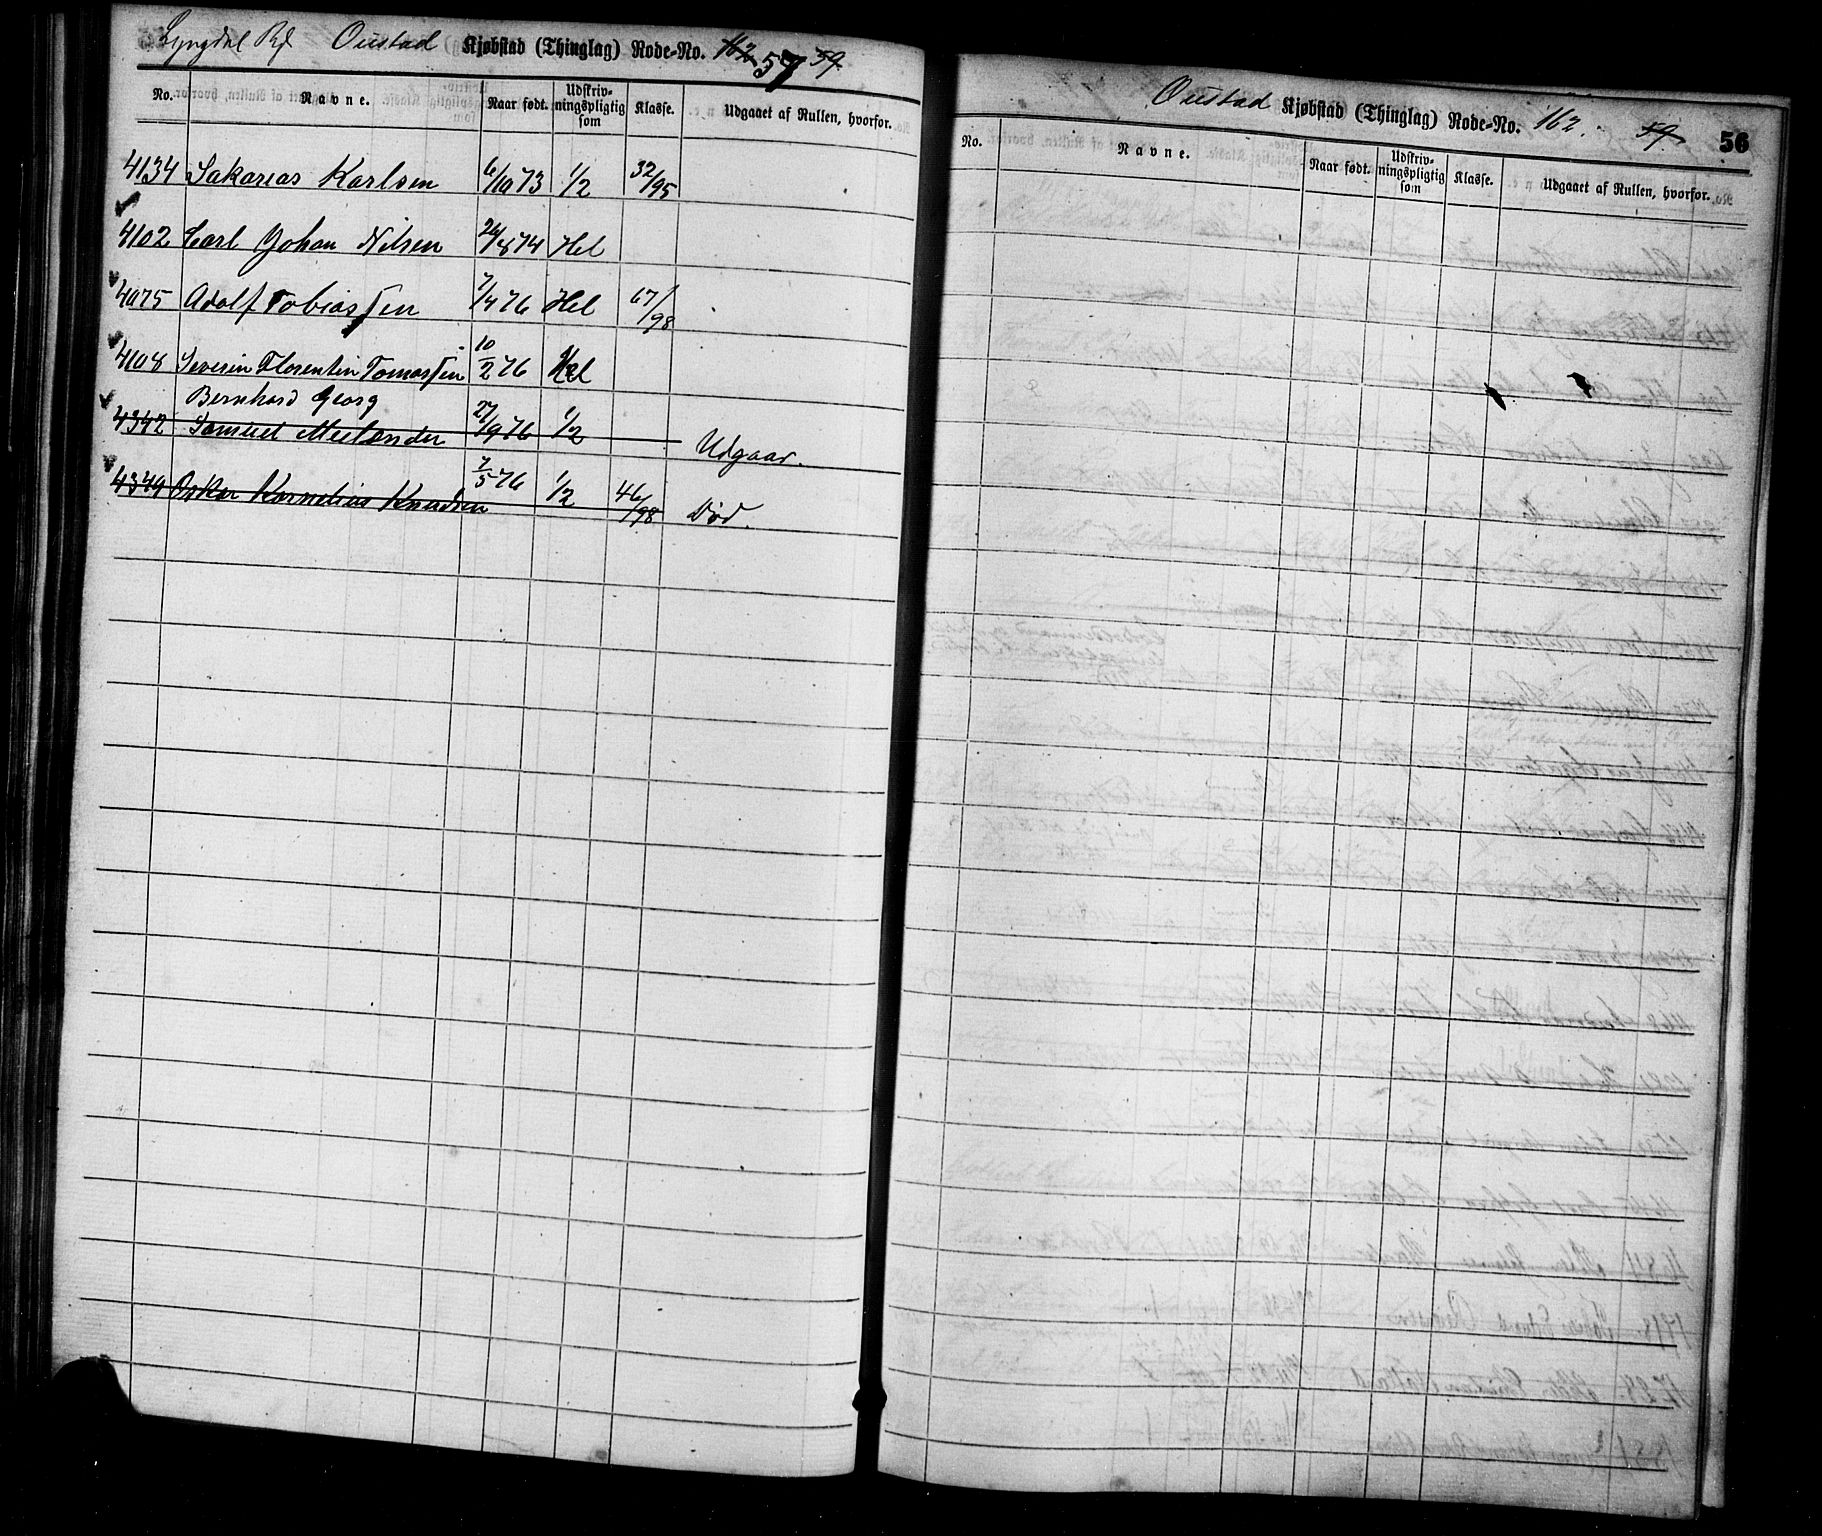 Lyngdal Rd Oustad Kjøbstad (Thinglag) Rode-No. 162 57 59
No. Navne. Naar født. Udskriv-ningspligtig som Klasse. Udgaaet af Rullen, hvorfor.
4134 Sakarias Karlsen 6/10 73 1/2 32/95
4102 Carl Johan Nilsen 24/8 74 Hel
4075 Adolf Tobiassen 7/4 76 Hel 67/98
4108 Severin Florentin Tomassen 10/2 76 Hel
Bernhard Georg
4342 Samuel Meelander 27/9 76 1/2 Udgaar.
4379 Oskar Kornelius Knudsen 7/5 76 1/2 46/98 Død.
Oustad Kjøbstad (Thinglag) Rode-No. 162. 59 56
No. Navne. Naar født. Udskriv-ningspligtig som Klasse. Udgaaet af Rullen, hvorfor.